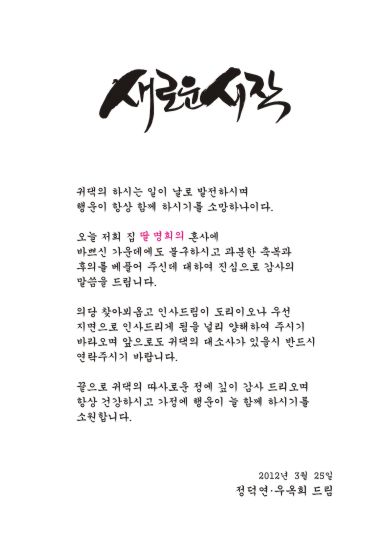 새로운시작
귀댁의 하시는 일이 날로 발전하시며
행운이 항상 함께 하시기를 소망하나이다.
오늘 저희 집 딸 명희의 혼사에
바쁘신 가운데에도 불구하시고 과분한 축복과
후의를 베풀어 주신데 대하여 진심으로 감사의
말씀을 드립니다.
의당 찾아뵈옵고 인사드림이 도리이오나 우선
지면으로 인사드리게 됨을 널리 양해하여 주시기
바라오며 앞으로도 귀댁의 대소사가 있을시 반드시
연락주시기 바랍니다.
끝으로 귀댁의 따사로운 정에 깊이 감사 드리오며
항상 건강하시고 가정에 행운이 늘 함께 하시기를
소원합니다.
2012년 3월 25일
정덕연·우옥희 드림